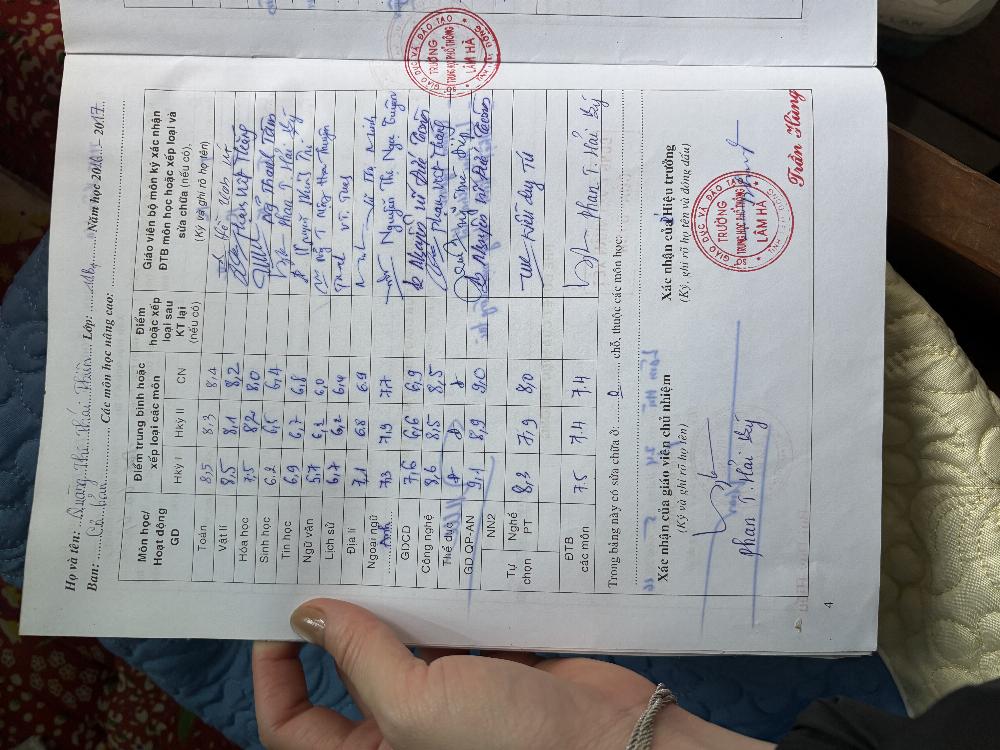 Họ và tên: Quảng Thị Thái Hiền Lớp: 11 Năm học 2016 - 2017
Ban: Cơ bản Các môn học nâng cao:
Môn học/ Hoạt động GD Điểm trung bình hoặc xếp loại các môn Điểm hoặc xếp loại sau KT lại (nếu có) Giáo viên bộ môn ký xác nhận ĐTB môn học hoặc xếp loại và sửa chữa (nếu có). (Ký và ghi rõ họ tên)
HKỳ I HKỳ II CN
Toán 8,5 8,3 8,4
Vật lí 8,5 8,1 8,2 Phan Việt Thắng
Hóa học 7,5 8,2 8,0 Thanh Tâm
Sinh học 6,2 6,5 6,4 Phan T. Hải Kỳ
Tin học 6,9 6,7 6,8
Ngữ văn 5,7 6,2 6,0
Lịch sử 6,7 6,2 6,4
Địa lí 7,1 6,8 6,9
Ngoại ngữ Anh 7,3 7,9 7,7 Nguyễn Thị Ngọc Truyền
GDCD 7,6 6,6 6,9
Công nghệ 8,6 8,5 8,5 Phan Việt Thắng
Thể dục đ đ đ
GD QP-AN 9,1 8,9 9,0
Tự chọn NN2
Nghề PT 8,3 7,9 8,0 Duy Tú
ĐTB các môn 7,5 7,4 7,4 Phan T. Hải Kỳ
Trong bảng này có sửa chữa ở: 0 chỗ, thuộc các môn học:
Xác nhận của giáo viên chủ nhiệm
(Ký và ghi rõ họ tên)
Phan T. Hải Kỳ
Xác nhận của Hiệu trưởng
(Ký, ghi rõ họ tên và đóng dấu)
SỞ GIÁO DỤC VÀ ĐÀO TẠO
TRƯỜNG
TRUNG HỌC PHỔ THÔNG
LÂM HÀ
Trần Hùng
SỞ GIÁO DỤC VÀ ĐÀO TẠO
TRƯỜNG
TRUNG HỌC PHỔ THÔNG
LÂM HÀ
4